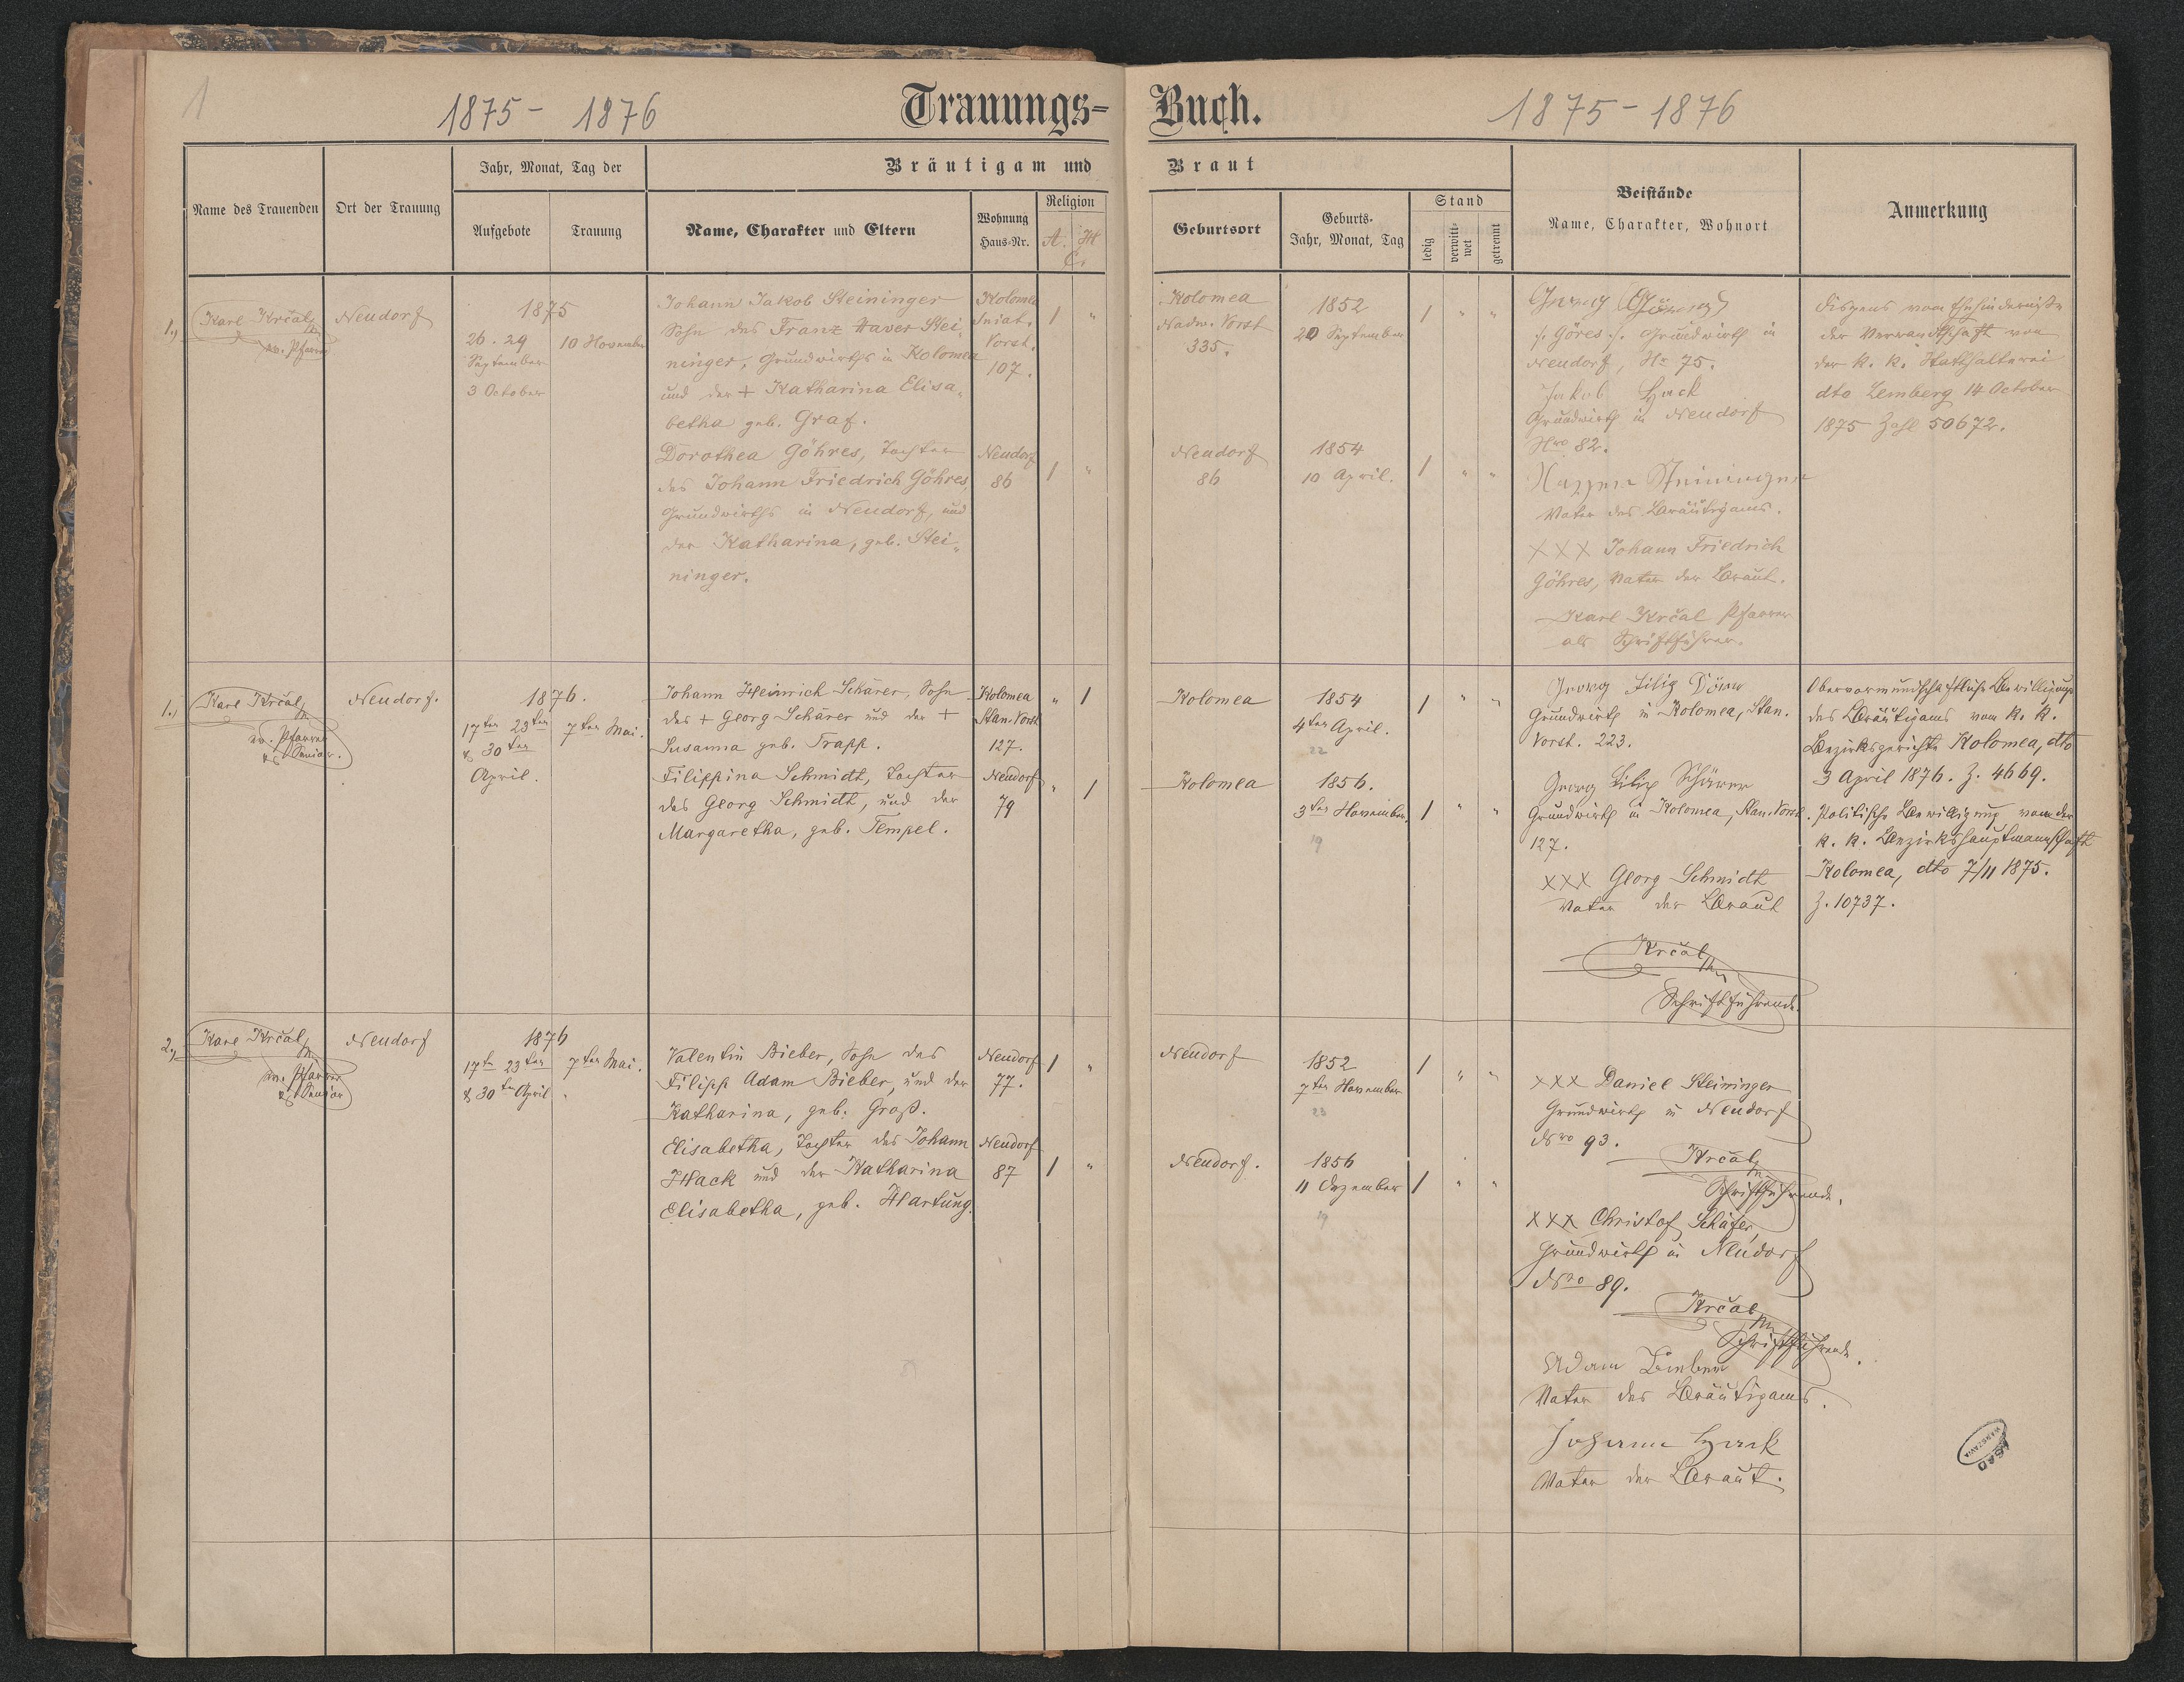 1
1875 - 1876
Trauungs-Buch.
1875 - 1876
Name des Trauenden
Ort der Trauung
Jahr, Monat, Tag der
Aufgebote
Trauung
Bräutigam und Braut
Name, Charakter und Eltern
Wohnung
Haus-Nr.
Religion
A. H.
C.
Geburtsort
Geburts-
Jahr, Monat, Tag
Stand
ledig
verwitt-
wet
getrennt
Beistände
Name, Charakter, Wohnort
Anmerkung
1.,
Karl Krčal
ev. Pfarrer
Neudorf
1875
26. 29
September
3 October
10 November
Johann Jakob Steininger
Sohn des Franz Xaver Stei-
ninger, Grundwirths in Kolomea
und der + Katharina Elisa-
betha geb. Graf.
Kolomea
Sniat.
Vorst.
107.
1 "
Kolomea
Nadw. Vorst
335.
1852
20 September
1 " "
Dorothea Göhres, Tochter
des Johann Friedrich Göhres
Grundwirths in Neudorf, und
der Katharina, geb. Stei-
ninger.
Neudorf
86
1 "
Neudorf
86
1854
10 April.
1 " "
Georg
/: Göres :/ Grundwirth in
Neudorf, Nr 75.
Jakob Hack
Grundwirth in Neudorf
Nro 82.
Steininger
Vater des Bräutigams.
XXX Johann Friedrich
Göhres, Vater der Braut.
Karl Krčal Pfarrer
als Schriftführer.
Dispens vom Ehehindernisse
der Verwandtschaft von
der k. k. Statthalterei
dto Lemberg 14 October
1875 Zahl 50672.
1.,
Karl Krčal
ev. Pfarrer
& Senior.
Neudorf.
1876.
17ten 23ten
& 30ten
April.
7ten Mai.
Johann Heinrich Schärer, Sohn
des + Georg Schärer und der +
Susanna geb. Trapp.
Kolomea
Stan. Vorst
127.
" 1
Kolomea
1854
4ten April.
22
1 " "
Filippina Schmidt, Tochter
des Georg Schmidt, und der
Margaretha, geb. Tempel.
Neudorf
79
" 1
Kolomea
1856.
3ten November.
19
1 " "
Georg Filip
Grundwirth in Kolomea, Stan.
Vorst. 223.
Georg Filip Schärer
Grundwirth in Kolomea, Stan. Vorst.
127.
XXX Georg Schmidt
Vater der Braut
Krčal
Schriftführende.
Obervormundschaftliche Bewilligung
des Bräutigams vom k. k.
Bezirksgerichte Kolomea, dto
3 April 1876. Z. 4669.
Politische Bewilligung von der
k. k. Bezirkshauptmannschaft
Kolomea, dto 7/11 1875.
Z. 10737.
2.,
Karl Krčal
ev. Pfarrer
& Senior
Neudorf
1876
17ten 23ten
& 30ten April.
7ten Mai.
Valentin Bieber, Sohn des
Filipp Adam Bieber, und der
Katharina, geb. Groß.
Neudorf
77.
1 "
Neudorf
1852
7ten November
23
1 " "
Elisabetha, Tochter des Johann
Hack und der Katharina
Elisabetha, geb. Hartung.
Neudorf
87
1 "
Neudorf.
1856
11 Dezember
19
1 " "
XXX Daniel Steininger
Grundwirth in Neudorf
Nro 93.
Krčal
Schriftführende.
XXX Christof Schäfer
Grundwirth in Neudorf
Nro 89.
Krčal
Schriftführende.
Adam Bieber
Vater des Bräutigams.
Johann Hack
Vater der Braut.
AGAD
WARSZAWA